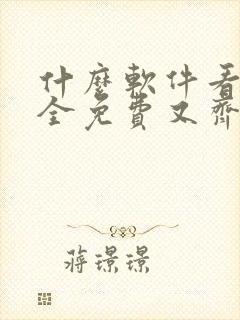 什麼軟件看
全免費又齊
蔣璟璟